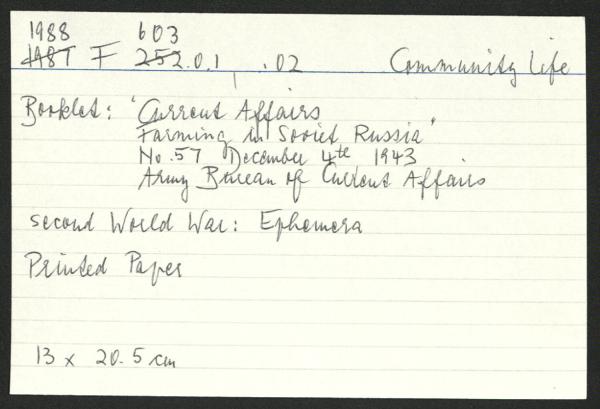 1988 603
1987 F 252.0.1 .02 Community Life
Booklet: "Current Affairs
Farming in Soviet Russia"
No.57 December 4th 1943
Army Bureau of Current Affairs
Second World War: Ephemera
Printed Paper
13 x 20.5 cm